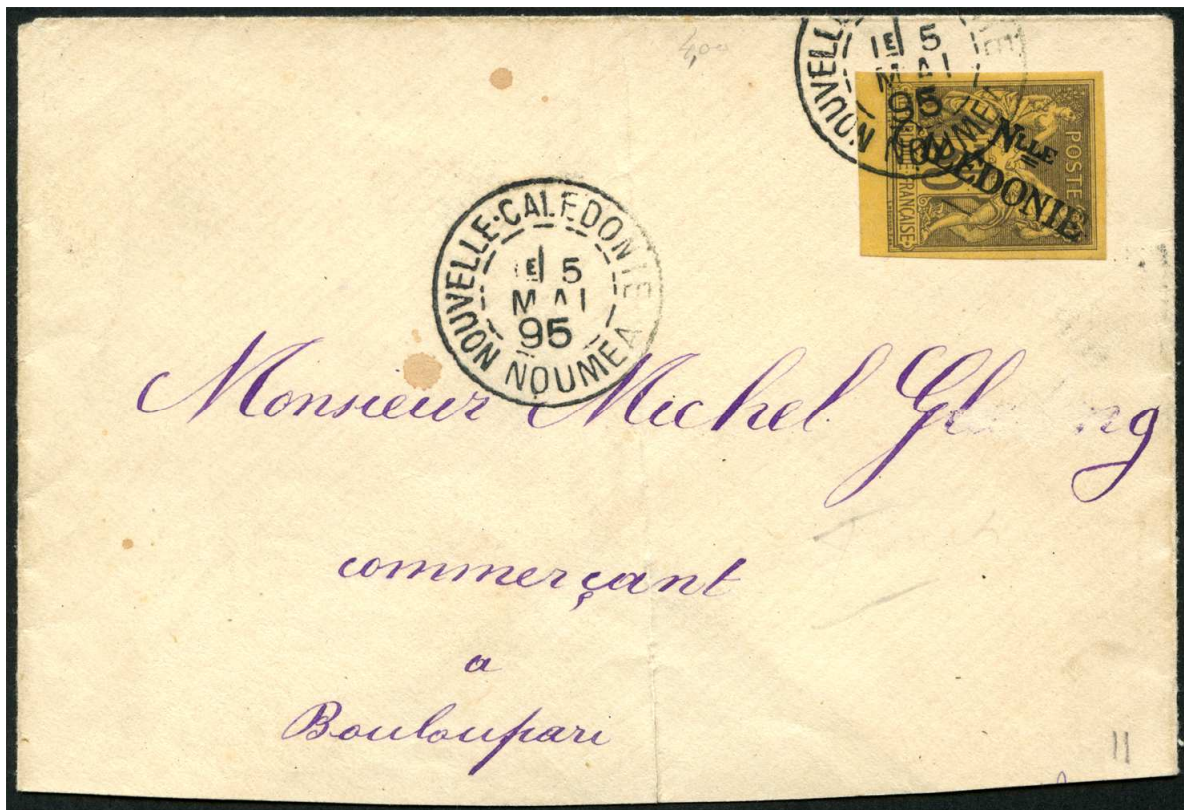 4,00
NOUVELLE
1E/ 5
MAI
95
NOUMEA
NLLE
CALÉDONIE
POSTE
FRANÇAISE
NOUVELLE-CALEDONIE
1E/ 5
MAI
95
NOUMEA
Monsieur Michel
commerçant
a
Bouloupari
11